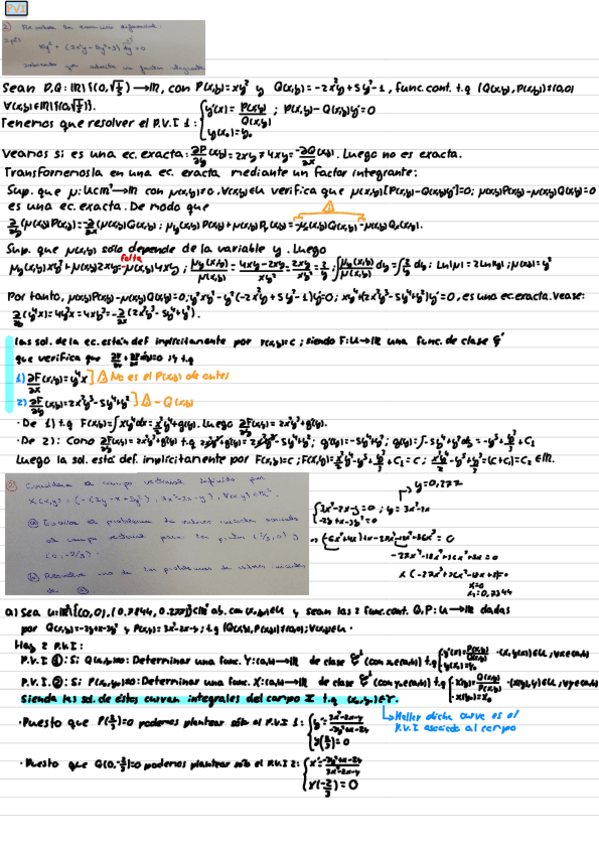 PVI
2) Resolver la ecuación diferencial:
xy² + (2x²y - 5y²+1) dy = 0
sabiendo que admite un factor integrante
Sean P,Q: ℝ²\{(0,√(1/5))} → ℝ, con P(x,y)=xy² y Q(x,y)=-2x²y+5y²-1, func. cont. t.q (Q(x,y), P(x,y))≠(0,0)
∀(x,y)∈ℝ²\{(0,√(1/5))}.
Tenemos que resolver el P.V.I 1: { y'(x) = P(x,y)/Q(x,y) ; P(x,y)-Q(x,y)y'=0
y(x₀)=y₀
Veamos si es una ec. exacta: ∂P/∂y (x,y) = 2xy ≠ 4xy = -∂Q/∂x (x,y). Luego no es exacta.
Transformemosla en una ec. exacta mediante un factor integrante:
Sup. que μ: U⊂ℝ²→ℝ con μ(x,y)≠0, ∀(x,y)∈U verifica que μ(x,y)[P(x,y)-Q(x,y)y']=0; μ(x,y)P(x,y)-μ(x,y)Q(x,y)y'=0
es una ec. exacta. De modo que
∂/∂y (μ(x,y)P(x,y)) = -∂/∂x (μ(x,y)Q(x,y)); μy(x,y)P(x,y)+μ(x,y)Py(x,y) = -μx(x,y)Q(x,y)-μ(x,y)Qx(x,y).
Sup. que μ(x,y) sólo depende de la variable y. Luego
falta
μy(x,y)xy²+μ(x,y)2xy=μ(x,y)4xy; μy(x,y)/μ(x,y) = (4xy-2xy)/xy² = 2xy/xy² = 2/y; ∫ μy(x,y)/μ(x,y) dy = ∫ 2/y dy; Ln|μ| = 2Ln|y|; μ(x,y)=y²
Por tanto, μ(x,y)P(x,y)-μ(x,y)Q(x,y)y'=0; y²xy²-y²(-2x²y+5y²-1)y'=0; xy⁴+(2x²y³-5y⁴+y²)y'=0, es una ec. exacta. Vease:
∂/∂y (y⁴x) = 4y³x = 4xy³ = ∂/∂x (2x²y³-5y⁴+y²).
Las sol. de la ec. están def implícitamente por F(x,y)=C; siendo F: U→ℝ una func. de clase ζ¹
que verifica que ∂F/∂x + ∂F/∂y y'=0 y t.q
1) ∂F/∂x (x,y) = y⁴x ] ⚠ No es el P(x,y) de antes
2) ∂F/∂y (x,y) = 2x²y³-5y⁴+y² ] ⚠ -Q(x,y)
· De 1) t.q F(x,y)=∫xy⁴dx = x²/2 y⁴+g(y). Luego ∂F/∂y (x,y) = 2x²y³+g'(y).
· De 2): Como ∂F/∂y (x,y) = 2x²y³+g'(y) t.q 2x²y³+g'(y) = 2x²y³-5y⁴+y²; g'(y)=-5y⁴+y²; g(y)=∫-5y⁴+y²dy = -y⁵+y³/3+C₁
Luego la sol. está def. implícitamente por F(x,y)=C; F(x,y)=x²/2 y⁴-y⁵+y³/3+C₁=C; x²y⁴/2-y⁵+y³/3=(C+C₁)=C₂∈ℝ.
3) Considera el campo vectorial definido por
X(x,y) = (-(2y-x+3y²), 3x²-2x-y), ∀(x,y)∈ℝ².
(a) Escribe el problema de valores iniciales asociado
al campo vectorial para los puntos (2/3,0) y
(0,-2/3).
(b) Resuelve uno de los problemas de valores iniciales
de (a).
→ y=0,277
{ 3x²-2x-y=0 ; y=3x²-2x
-2y+x-3y²=0
-27x⁴+18x³+36x²+5x=0
x=0
x=0,7844
a) Sea U=ℝ²\{(0,0),(0.7844,0.277)}⊂ℝ² ab. con (x₀,y₀)∈U y sean las 2 func. cont. Q,P: U→ℝ dadas
por Q(x,y)=-2y+x-3y² y P(x,y)=3x²-2x-y; t.q (Q(x,y),P(x,y))≠(0,0); ∀(x,y)∈U.
Hay 2 P.V.I:
P.V.I ①: Si Q(x₀,y₀)≠0: Determinar una func. Y: (a,b)→ℝ de clase ζ¹ (con x₀∈(a,b)) t.q { y'(x)=P(x,y)/Q(x,y) · (x,y(x))∈U, ∀x∈(a,b)
y(x₀)=y₀
P.V.I ②: Si P(x₀,y₀)≠0: Determinar una func. X: (a,b)→ℝ de clase ζ¹ (con y₀∈(a,b)) t.q { x'(y)=Q(x,y)/P(x,y) · (x(y),y)∈U, ∀y∈(a,b)
x(y₀)=x₀
Siendo las sol. de éstos curvas integrales del campo X t.q (x₀,y₀)∈Y.
↳ Hallar dicha curva es el
P.V.I asociado al campo
· Puesto que P(2/3)=0 podemos plantear sólo el P.V.I 1: { y'=(3x²-2x-y)/(-3y²+x-2y)
y(2/3)=0
· Puesto que Q(0,-2/3)=0 podemos plantear sólo el P.V.I 2: { x'=(-3y²+x-2y)/(3x²-2x-y)
x(-2/3)=0